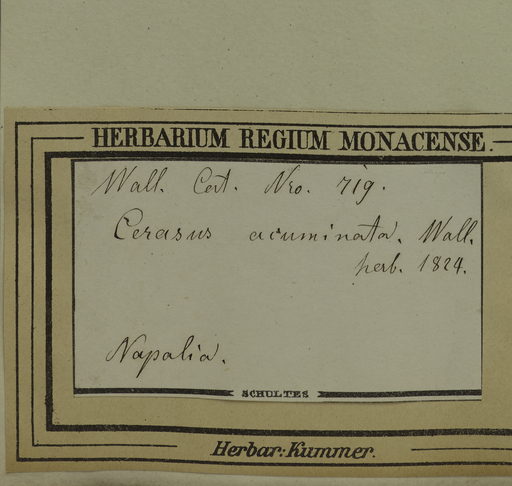 HERBARIUM REGIUM MONACENSE.
Wall. Cat. Nro. 719.
Cerasus acuminata. Wall.
herb. 1824.
Napalia.
SCHULTES
Herbar: Kummer.